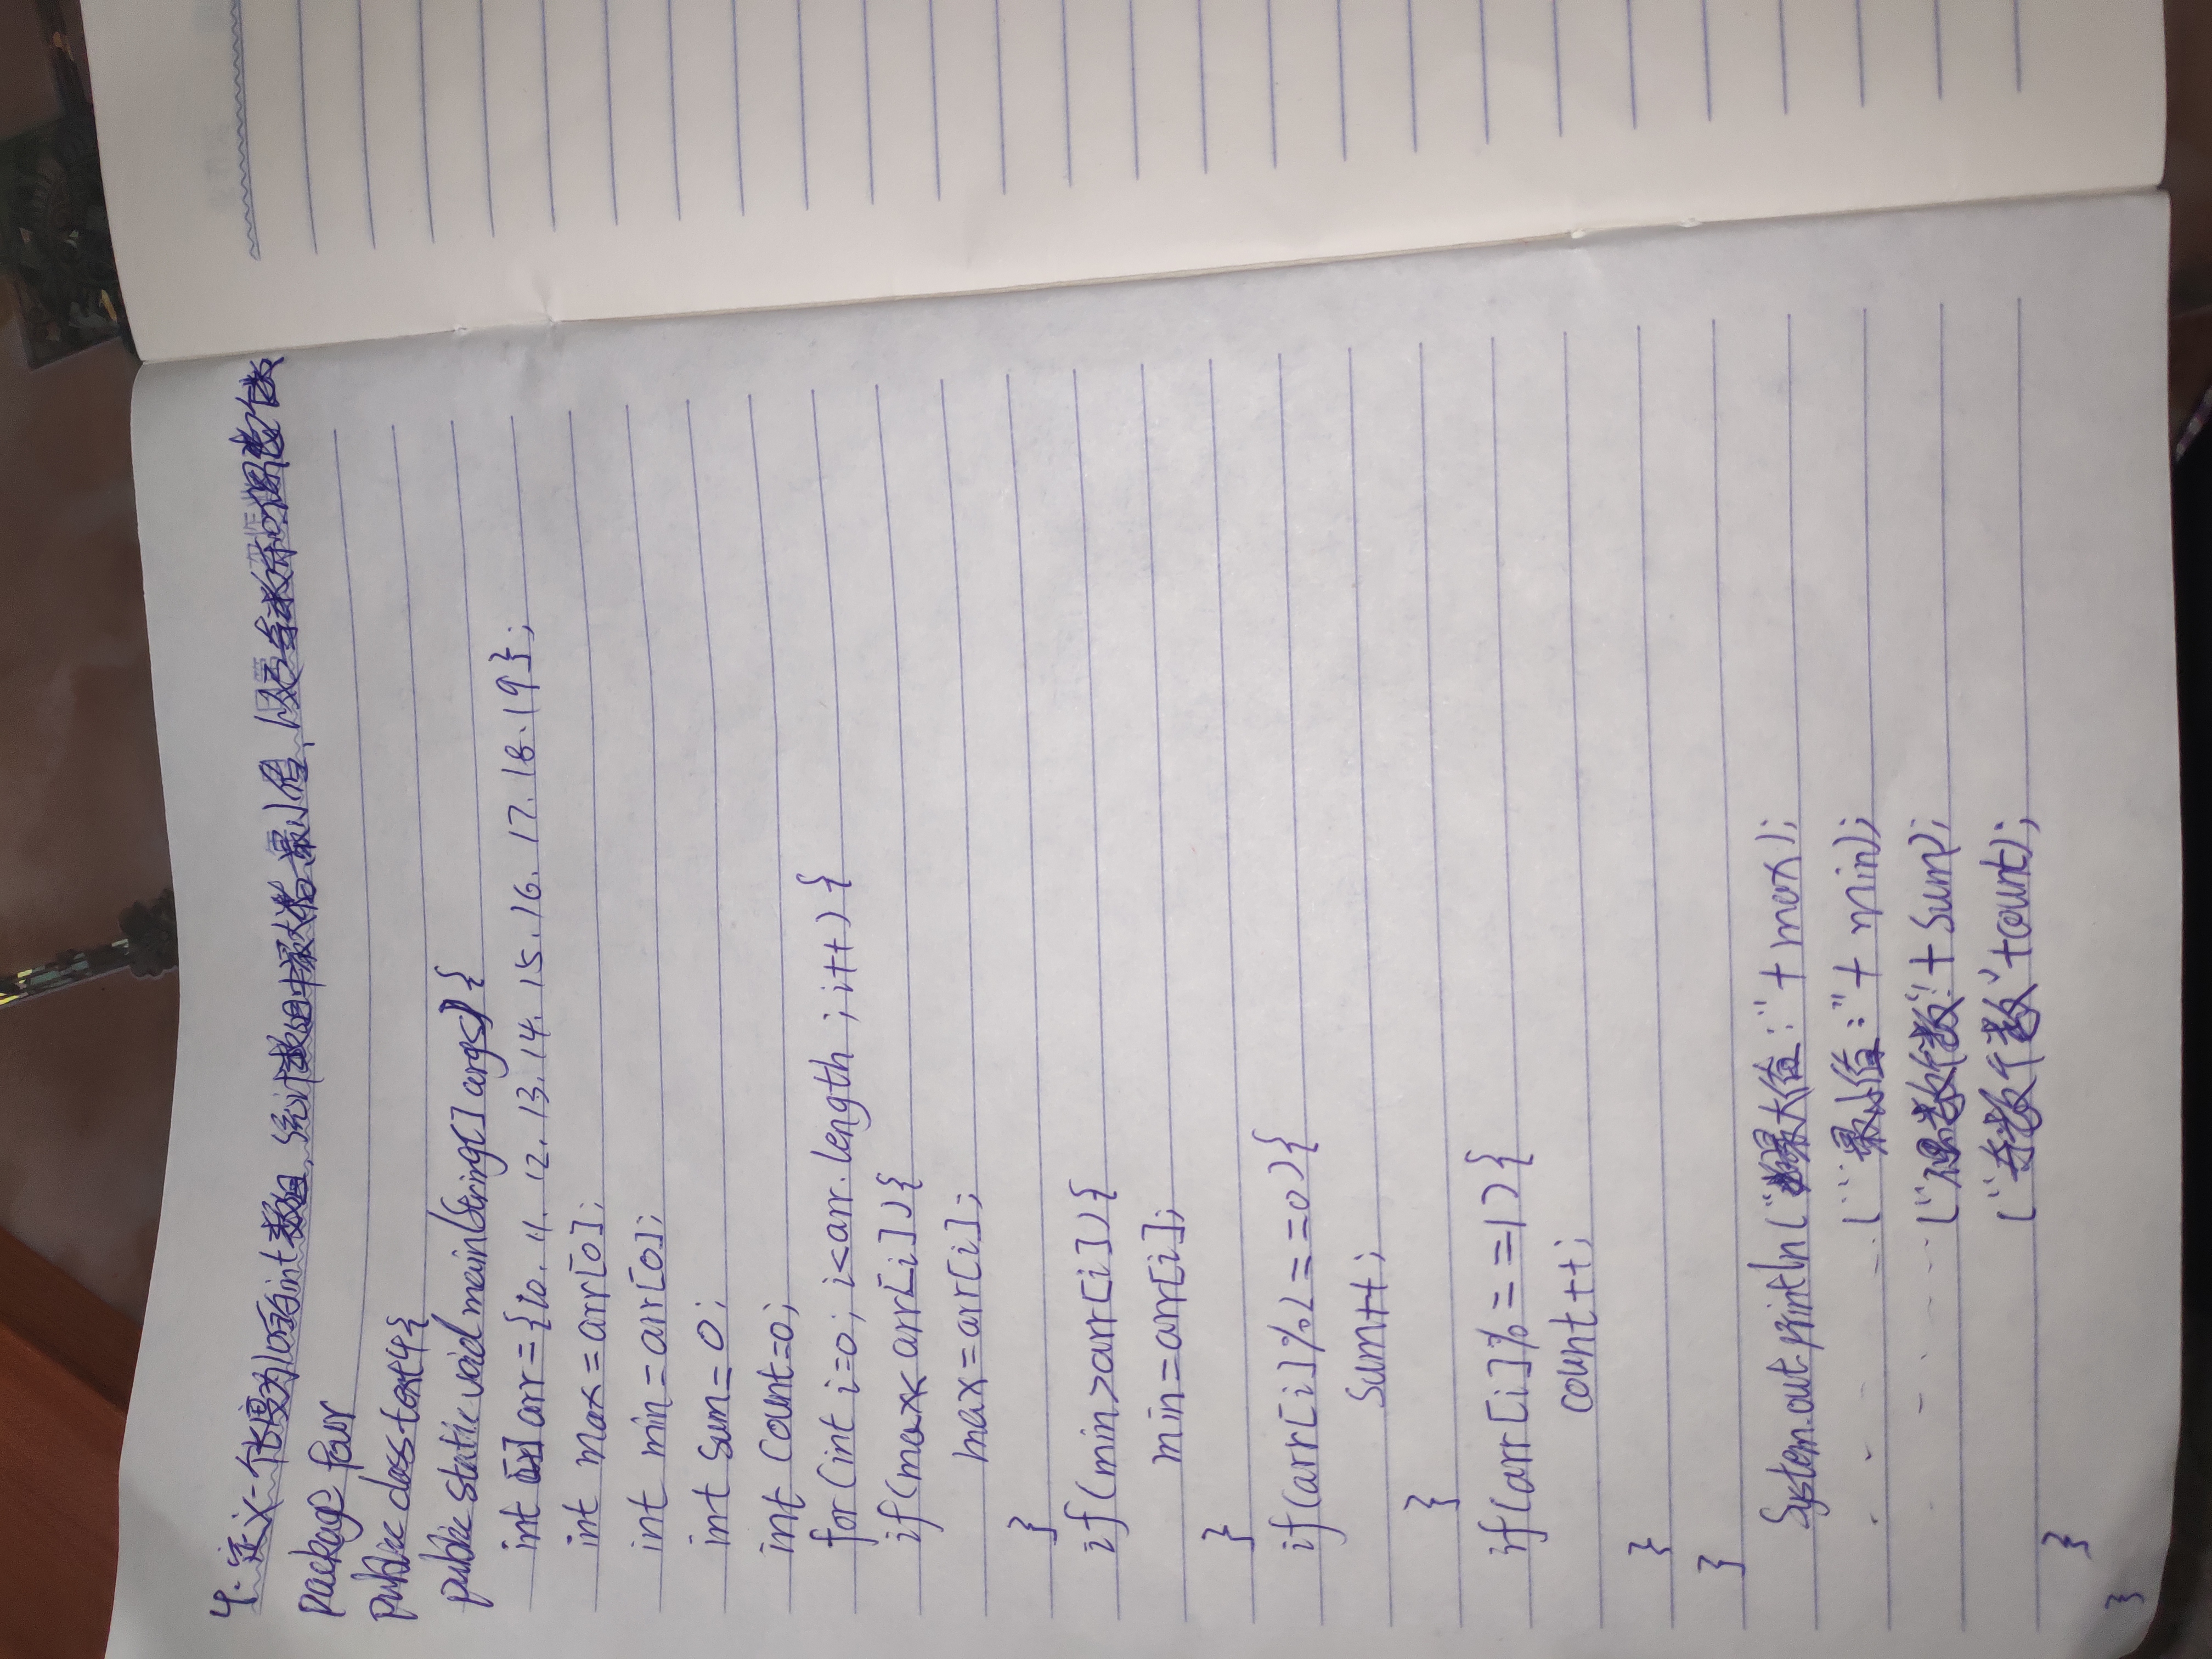 4.定义一个长度为10的int数组，统计数组中最大值、最小值、以及奇数和偶数的个数
package four
public class test4{
public static void main(String[] args){
int[] arr={10.11.12.13.14.15.16.17.18.19};
int max=arr[0];
int min=arr[0];
int sum=0;
int count=0;
for(int i=0;i<arr.length;i++){
if(max<arr[i]){
max=arr[i];
}
if(min>arr[i]){
min=arr[i];
}
if(arr[i]%2==0){
sum++;
}
if(arr[i]%2==1){
count++;
}
}
System.out.println("最大值:"+max);
("最小值:"+min);
("偶数个数:"+sum);
("奇数个数"+count);
}
}